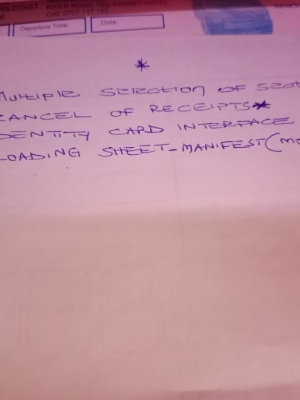 COAST
Departure Time
Date
*
MULTIPLE SELECTION OF SEAT
CANCEL OF RECEIPTS*
DENTITY CARD INTERFACE
LOADING SHEET-MANIFEST(